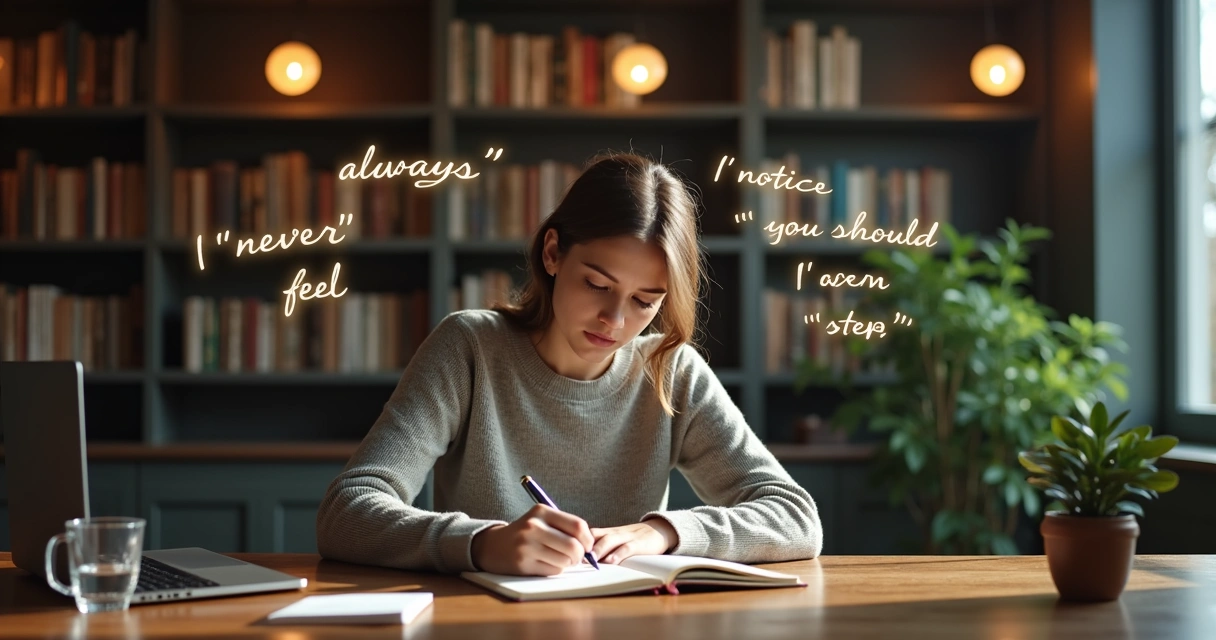 always”
I "never”
feel
I' notice
"' you should
I'
"" step, ”'